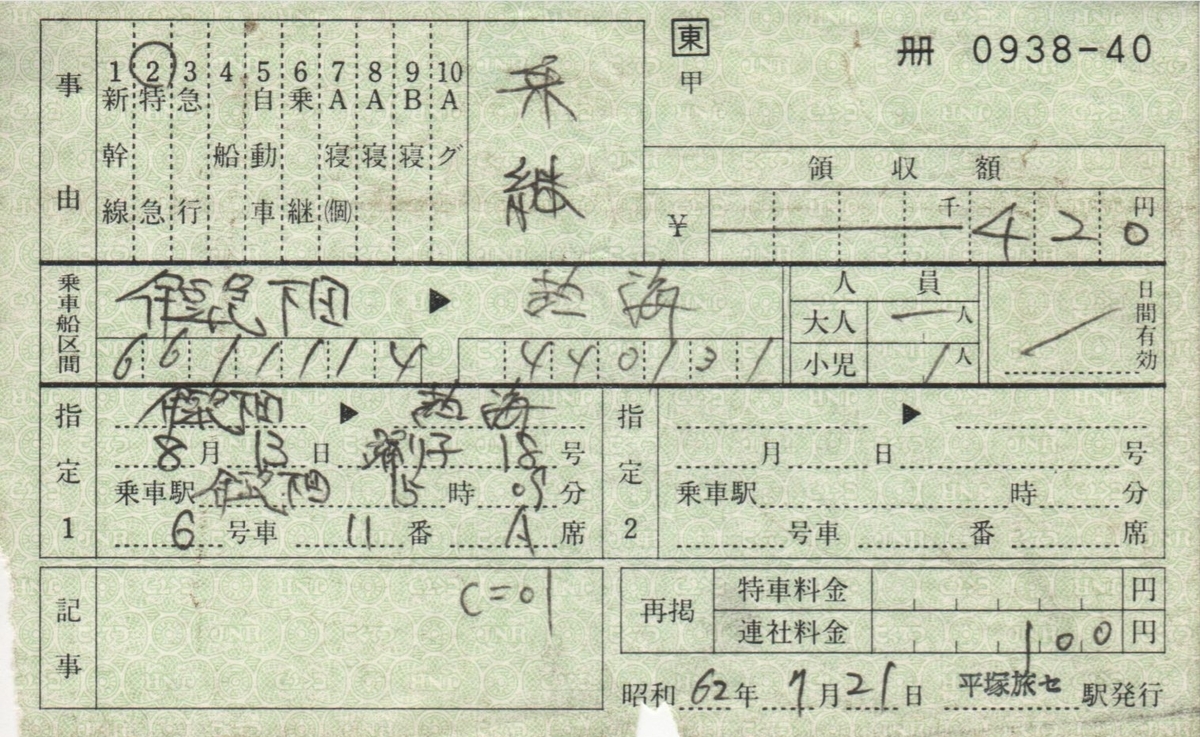 事由
1新幹線 ②特急 3急行 4船 5自動車 6乗継 7A寝(個) 8A寝 9B寝 10Aグ
乗継
東
甲
冊 0938-40
領収額
¥ 千 420 円
乗車船区間
伊豆急下田 ▶ 熱海
6611114 440131
人員
大人 一人
小児 / 人
日間有効
指定1
伊豆急下田 ▶ 熱海
8月13日 踊り子 18号
乗車駅 伊豆急下田 15時09分
6号車 11番 A席
指定2
▶
月 日 号
乗車駅 時 分
号車 番 席
記事
C=01
再掲
特車料金 円
連社料金 100円
昭和62年7月21日 平塚旅セ 駅発行